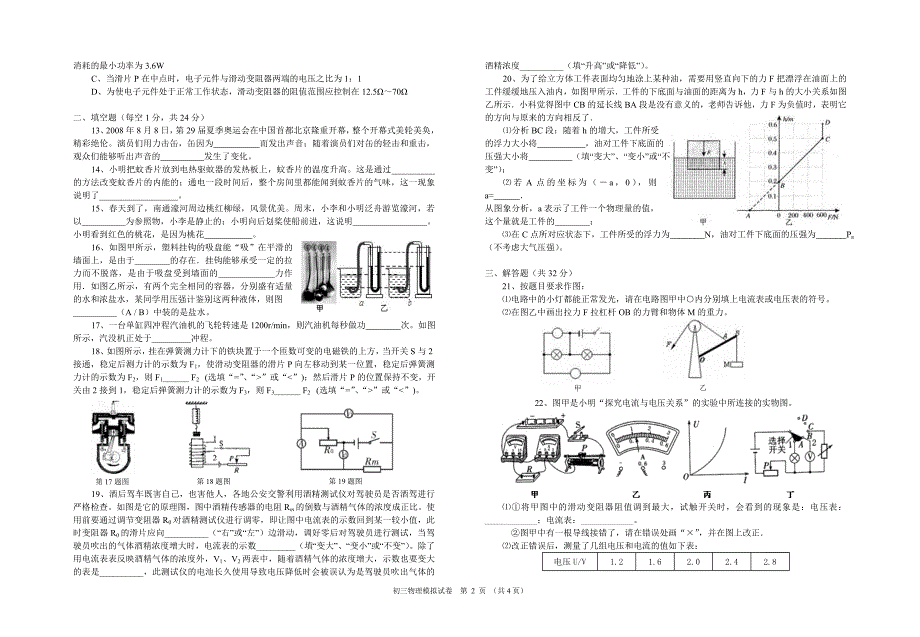 消耗的最小功率为 3.6W
C、当滑片 P 在中点时，电子元件与滑动变阻器两端的电压之比为 1：1
D、为使电子元件处于正常工作状态，滑动变阻器的阻值范围应控制在 12.5Ω～70Ω
二、填空题（每空 1 分，共 24 分）
13、2008 年 8 月 8 日，第 29 届夏季奥运会在中国首都北京隆重开幕，整个开幕式美轮美奂，
精彩绝伦。演员们用力击缶，缶因为__________而发出声音；随着演员们对缶的轻击和重击，
观众们能够听出声音的__________发生了变化。
14、小明把蚊香片放到电热驱蚊器的发热板上，蚊香片的温度升高。这是通过__________
的方法改变蚊香片的内能的；通电一段时间后，整个房间里都能闻到蚊香片的气味，这一现象
说明了__________________。
15、春天到了，南通濠河周边桃红柳绿，风景优美。周末，小李和小明泛舟游览濠河，若
以__________为参照物，小李是静止的；小明向后划桨使船前进，这说明________________。
小明看到红色的桃花，是因为桃花___________。
16、如图甲所示，塑料挂钩的吸盘能“吸”在平滑的
墙面上，是由于________的存在．挂钩能够承受一定的拉
力而不脱落，是由于吸盘受到墙面的____________力作
用．如图乙所示，有两个完全相同的容器，分别盛有适量
的水和浓盐水，某同学用压强计鉴别这两种液体，则图
__________（A / B）中装的是盐水。
甲
a
乙
b
17、一台单缸四冲程汽油机的飞轮转速是 1200r/min，则汽油机每秒做功________次。如图
所示，汽没机正处于_________冲程。
18、如图所示，挂在弹簧测力计下的铁块置于一个匝数可变的电磁铁的上方，当开关 S 与 2
接通，稳定后测力计的示数为 F1，使滑动变阻器的滑片 P 向左移动到某一位置，稳定后弹簧测
力计的示数为 F2，则 F1______ F2 (选填“=”、“>”或“<”)；然后滑片 P 的位置保持不变，开
关由 2 接到 1，稳定后弹簧测力计的示数为 F3，则 F3______ F2 (选填“=”、“>”或“<”)。
1
S
2
P
R
R0
S
Rm
第 17 题图
第 18 题图
第 19 题图
19、酒后驾车既害自己，也害他人，各地公安交警利用酒精测试仪对驾驶员是否酒驾进行
严格检查。如图是它的原理图，图中酒精传感器的电阻 Rm 的倒数与酒精气体的浓度成正比．使
用前要通过调节变阻器 R0 对酒精测试仪进行调零，即让图中电流表的示数回到某一较小值，此
时变阻器 R0 的滑片应向__________（“右”或“左”）边滑动，调好零后对驾驶员进行测试，当驾
驶员吹出的气体酒精浓度增大时，电流表的示数_________（填“变大”、“变小”或“不变”）。除了
用电流表表反映酒精气体的浓度外，V1、V2 两表中，随着酒精气体的浓度增大，示数也要变大
的表是__________，此测试仪的电池长久使用导致电压降低时会被误认为是驾驶员吹出气体的
酒精浓度__________（填“升高”或“降低”）。
20、为了给立方体工件表面均匀地涂上某种油，需要用竖直向下的力 F 把漂浮在油面上的
工件缓缓地压入油内，如图甲所示．工件的下底面与油面的距离为 h，力 F 与 h 的大小关系如图
乙所示．小科觉得图中 CB 的延长线 BA 段是没有意义的，老师告诉他，力 F 为负值时，表明它
的方向与原来的方向相反了．
⑴分析 BC 段：随着 h 的增大，工件所受
的浮力大小将__________，油对工件下底面的
压强大小将__________（填“变大”、“变小”或“不
变”）；
⑵若 A 点的坐标为（－a，0），则
a=______．
从图象分析，a 表示了工件一个物理量的值，
这个量就是工件的________；
F
h
甲
h/m
0.6
0.5
0.4
0.3
0.2
0.1
A
B
C
D
0 200 400 600 F/N
乙
⑶在 C 点所对应状态下，工件所受的浮力为________N，油对工件下底面的压强为_______P。
（不考虑大气压强）。
三、解答题（共 32 分）
21、按题目要求作图：
⑴电路中的小灯都能正常发光，请在电路图甲中〇内分别填上电流表或电压表的符号。
⑵在图乙中画出拉力 F 拉杠杆 OB 的力臂和物体 M 的重力。
甲
A
B
O
M
乙
22、图甲是小明“探究电流与电压关系”的实验中所连接的实物图。
S
R
P
甲
乙
U
O
I
丙
选择
开关
D
C
B
A
1
2
P
丁
⑴①将甲图中的滑动变阻器阻值调到最大，试触开关时，会看到的现象是：电压表：
____________；电流表：____________。
②图甲中有一根导线接错了，请在错误处画“×”，并在图上改正．
⑵改正错误后，测量了几组电压和电流的值如下表：
电压 U/V 1.2 1.6 2.0 2.4 2.8
初三物理模拟试卷 第 2 页 （共 4 页）